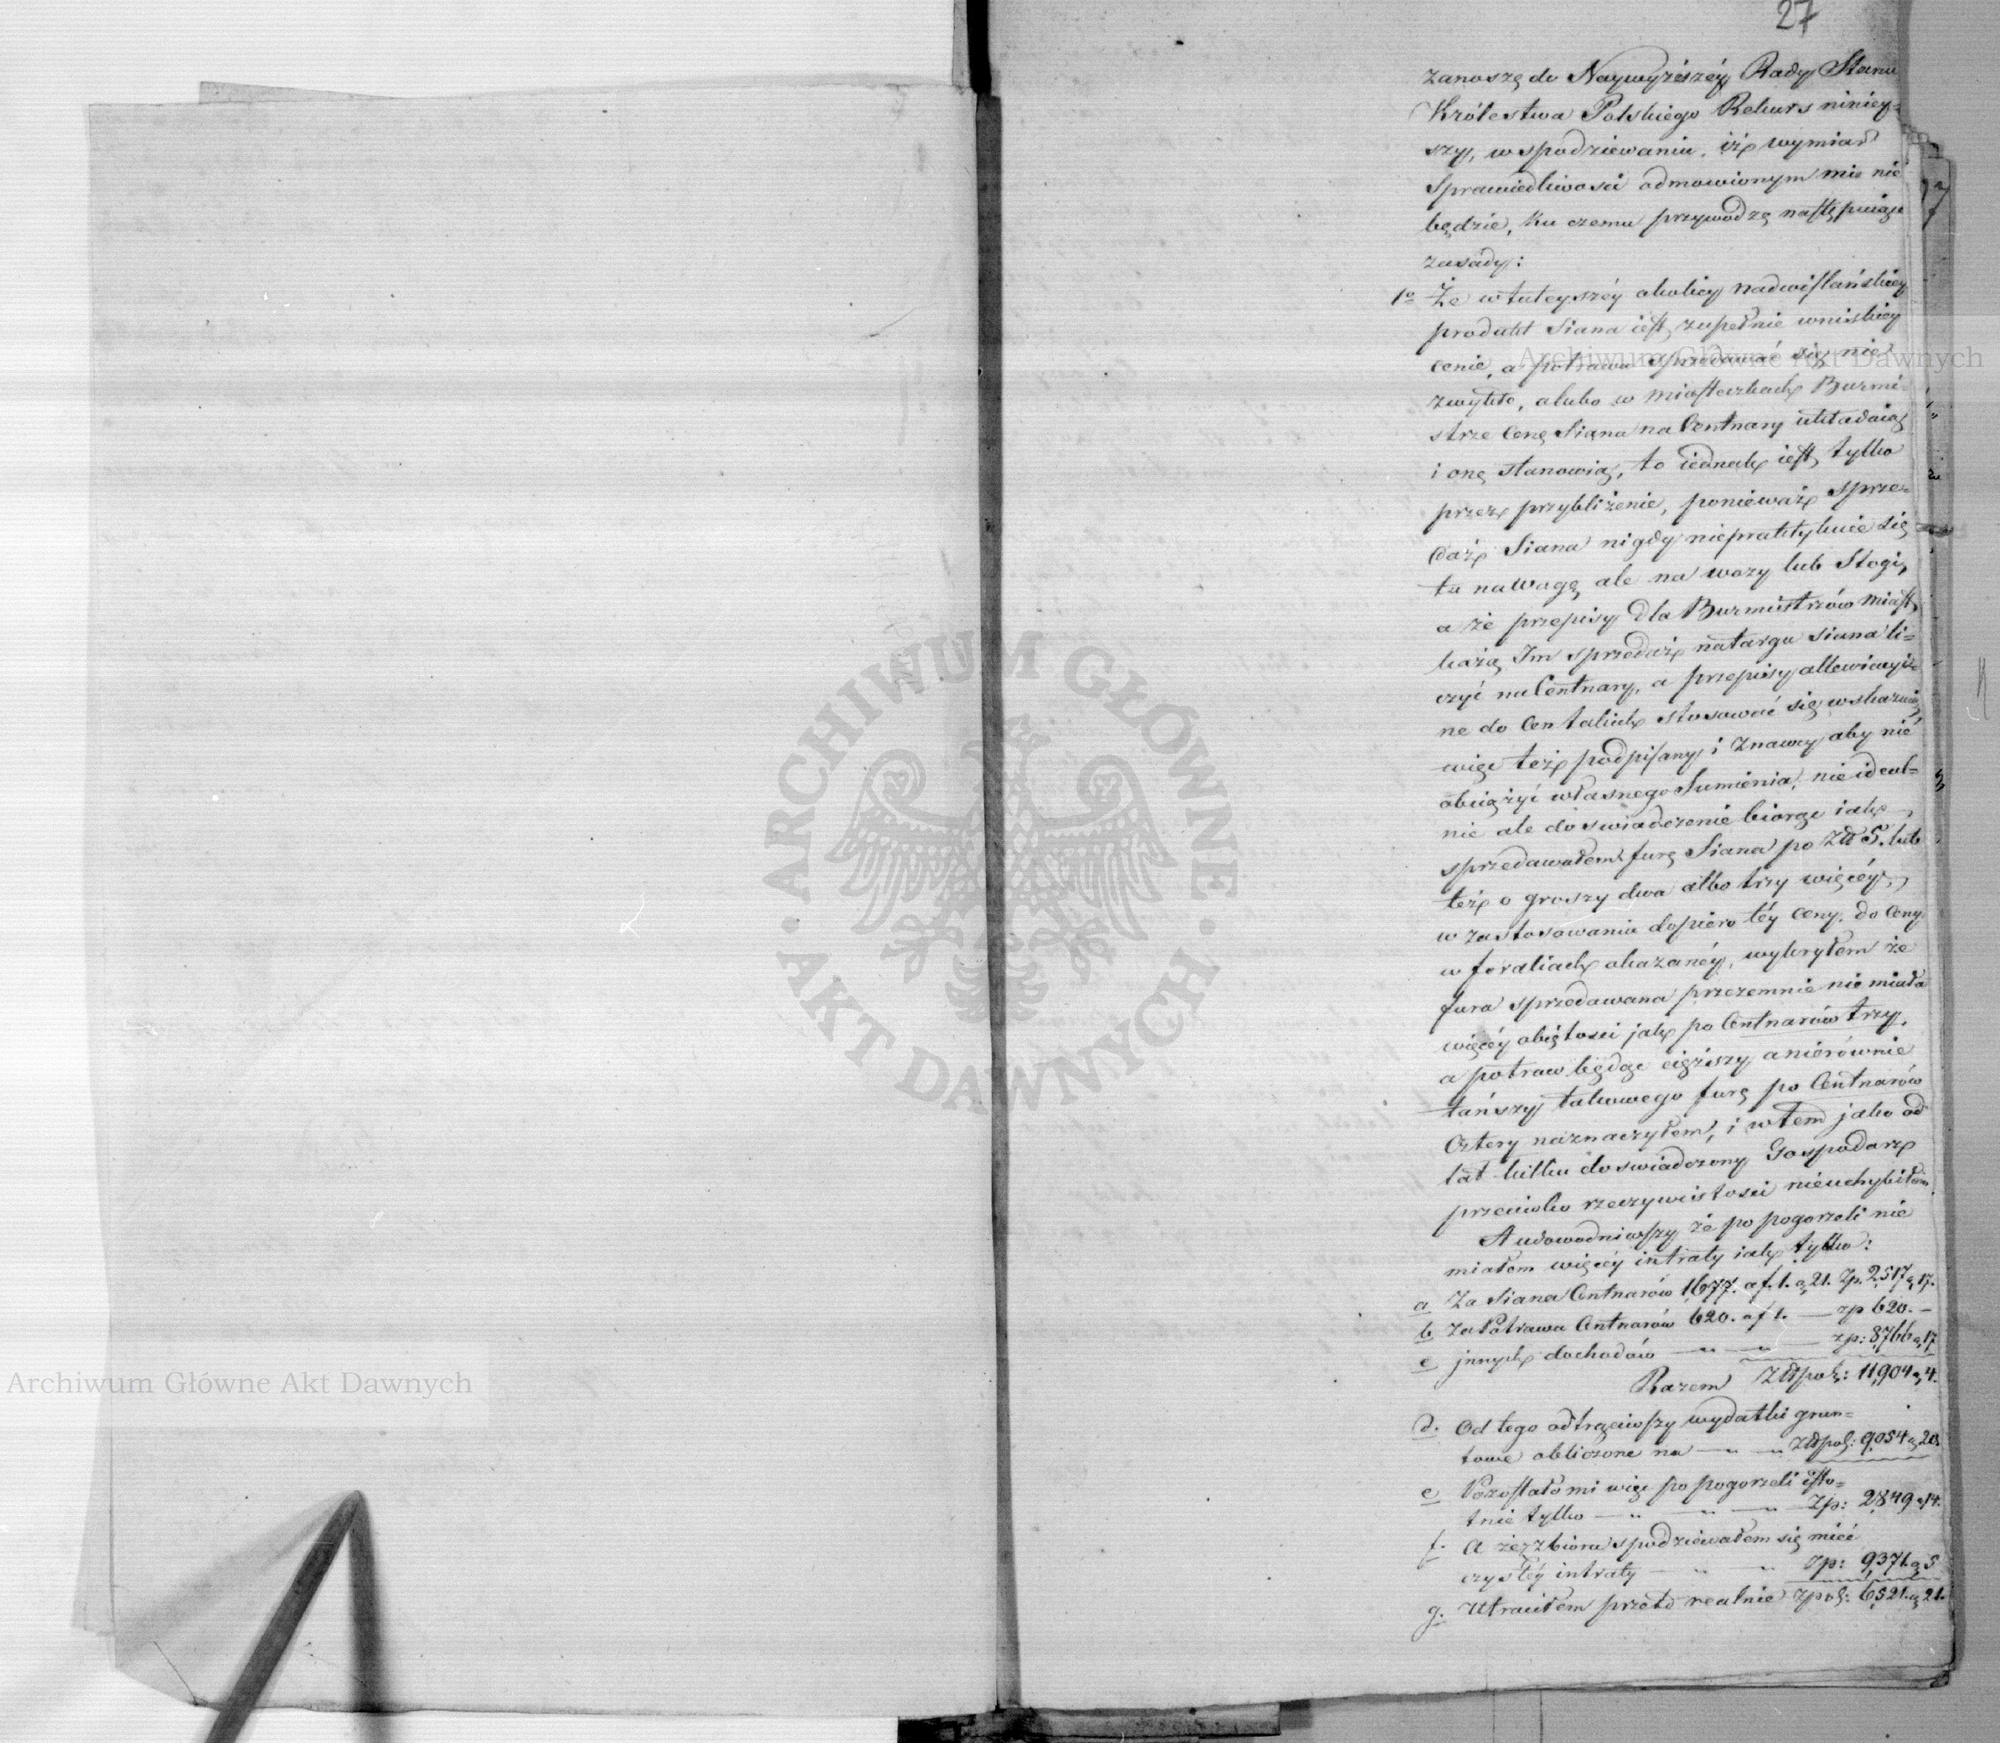 27
zanoszę do Naywyższéy Rady Stanu
Królestwa Polskiego Rekurs niniey=
szy, w spodziewaniu, iż wymiar
Sprawiedliwości odmowionym mi nie
będzie, ku czemu przywodzę następuiące
zasady:
1o Że w tuteyszéy okolicy nadwiślańskiey
produkt Siana iest zupełnie w niskiey
cenie, a potrawu sprzedawać się nie
zwykło, a lubo w miasteczkach Burmi=
strze Cenę Siana na Centnary układaią
i onę stanowią, to iednak iest tylko
przez przybliżenie, ponieważ sprze=
daż Siana nigdy niepraktykuie się
tu na wagę, ale na wozy lub Stogi,
a że przepisy dla Burmistrzów miast
każą Im sprzedaż na targu siana li=
czyć na Centnary, a przepisy allewiacyi=
ne do Centalich stosować się wskazuią
więc też podpisany i Znawcy aby nie
obciążyć własnego Sumienia, nie ideal=
nie ale doswiadczenie biorąc iak
sprzedawałem furę Siana po Zł 5. lub
też o groszy dwa albo trzy więcéy,
w zastosowaniu dopiero téy ceny, do Ceny
w foraliach okazanéy, wykryłem że
fura sprzedawana przezemnie nie miała
więcéy obiętości jak po Centnarów trzy,
a potraw będąc cięższy a nierównie
tańszy takowego furę po Centnarów
Cztery naznaczyłem, i w tem jako od
lat kilku doswiadczony Gospodarz
przeciwko rzeczywistości nieuchybiłem.
A udowodniwszy że po pogorzeli nie
miałem więcéy intraty iak tylko:
a Za Siana Centnarów 1677. a f. 1. g 21. Zp. 2,517 g 17.
b Za Potrawu Centnarów 620. a f 1. — zp 620. –
c jnnych dochodów — " — " — zp: 8,766 g 17
Razem Złpol: 11,904 g 4.
d. Od tego odtrąciwszy wydatki grun=
towe obliczone na — " — " Złpol: 9,054 g 20.
e Pozostało mi więc po pogorzeli isto=
tnie tylko — " " — " — Zp: 2,849 g 14.
f. A że z zbioru spodziewałem się mieć
czystéy intraty — " " Zp: 9,371 g 5
g. Utraciłem przeto realnie Zpol: 6,521. g 21.
Archiwum Główne Akt Dawnych
Archiwum Główne Akt Dawnych
ARCHIWUM GŁÓWNE · AKT DAWNYCH ·